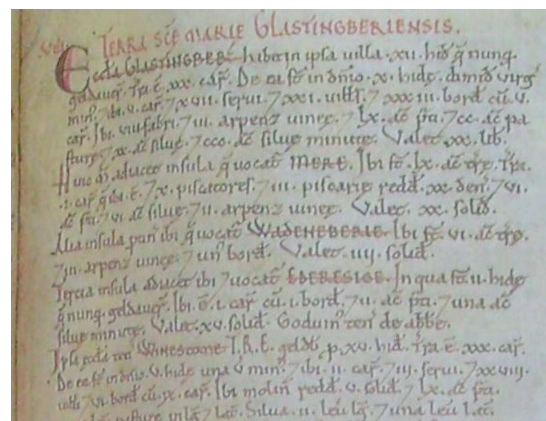 VIII. TERRA SCE MARIE GLASTINGBERIENSIS.
Eccla GLASTINGBERIE habet in ipsa uilla .XII. hid q nunq
geldauer. Tra .e. XXX. car. De ea st in dnio .X. hidę dimid virg
min. 7 ibi .V. car. 7 XVII. serui. 7 XXI. uilli. 7 XXXIII. bord cu .V.
car. Ibi VIII. fabri. 7 III. arpenz uineę. 7 LX. ac pti. 7 CC. ac pa
sturę. 7 XX. ac siluę. 7 CCC. ac siluę minutę. Valet XX. lib.
Huic M adiacet insula q uocat MERE. Ibi st LX. ac tre. Tra
.I. car q ibi .e. 7 X. piscatores. 7 III. piscarię redd XX. den. 7 VI.
ac pti. 7 VI. ac siluę. 7 II. arpenz uineę. Valet XX. solid.
Alia insula ptin ibi q uocat WADENEBERIE. Ibi st VI. ac tre.
7 III. arpenz uineę. 7 un bord. Valet IIII. solid.
Tercia insula adiacet ibi 7 uocat EDERESIGE. In qua st .II. hidę
q nunq geldauer. Ibi .e. I. car cu .I. bord. 7 II. ac pti. 7 una ac
siluę minutę. Valet XV. solid. Goduin ten de abbe.
Ipsa eccla ten WINESCOME. T.R.E. geldb p XV. hid. Tra .e. XXX. car.
De ea st in dnio .V. hidę una v min. 7 ibi .II. car. 7 III. serui. 7 XXVIII.
uilli 7 VI. bord cu .IX. car. Ibi molin redd .V. solid. 7 LX. ac pti.
pasturę in lg 7 lat. Silua .II. leu lg. 7 una leu lat.